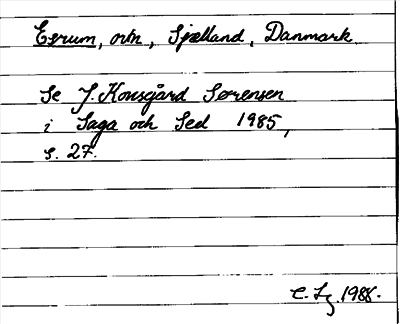 Esrum, ortn, Sjælland, Danmark
Se J. Kousgård Sørensen
i Saga och Sed 1985,
s. 27.
1988.